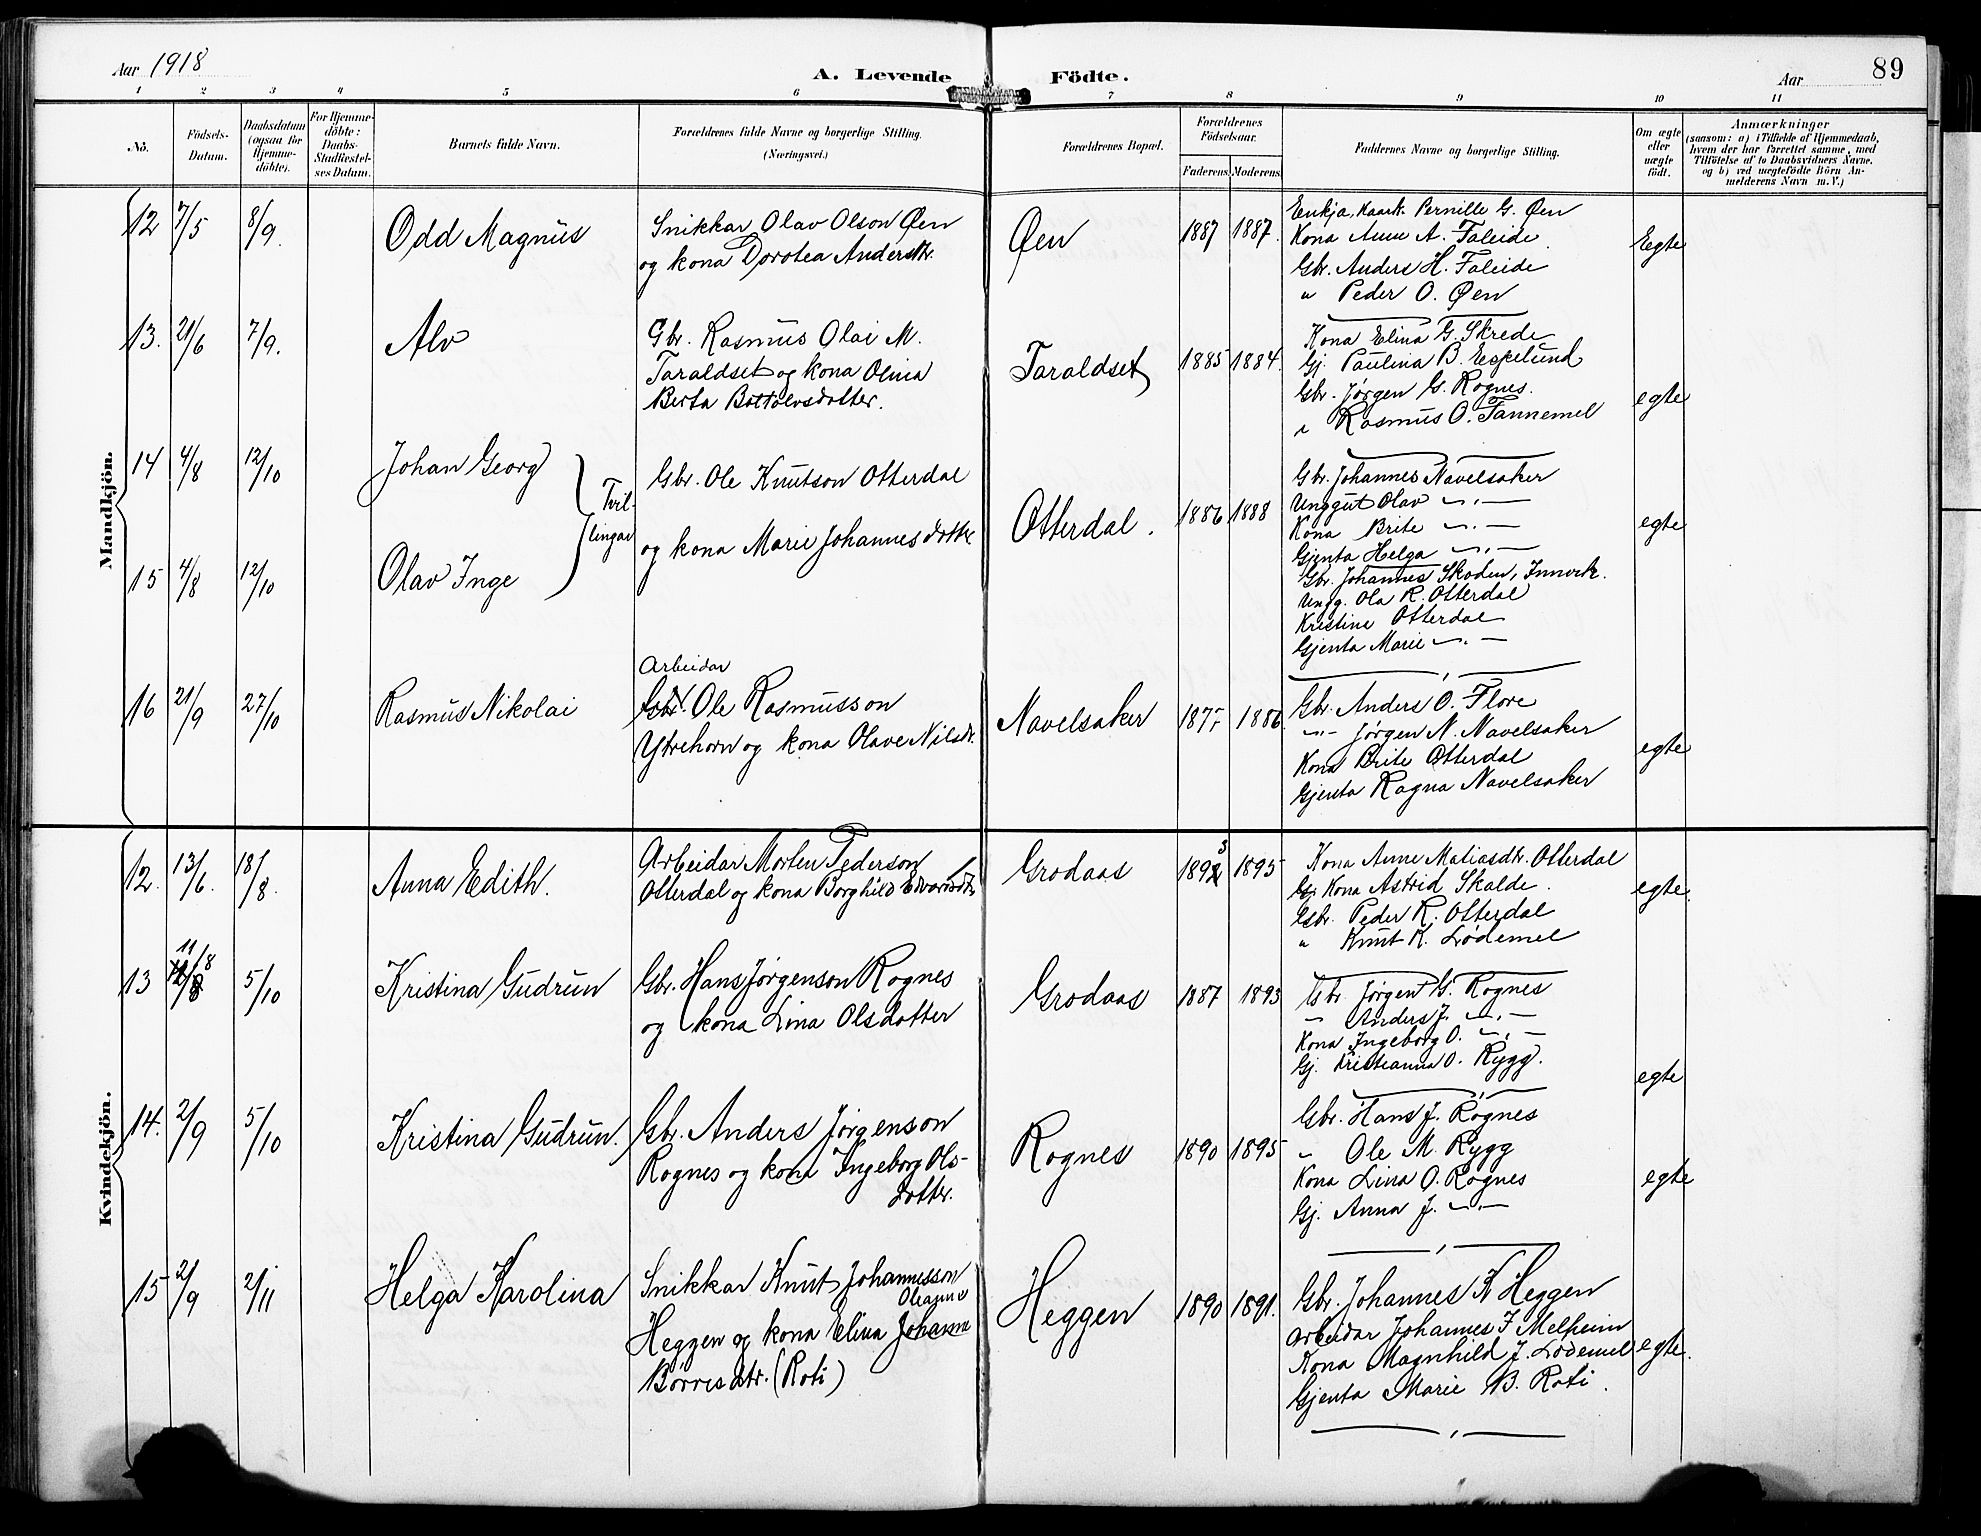 Aar 1918
A. Levende Födte.
Aar
89
1 2 3 4 5 6 7 8 9 10 11
No.
Födsels-
Datum.
Daabsdatum
(ogsaa for
Hjemme-
döbte).
For Hjemme-
döbte:
Daabs-
Stadfæstel-
ses Datum.
Barnets fulde Navn.
Forældrenes fulde Navne og borgerlige Stilling.
(Næringsvei.)
Forældrenes Bopæl.
Forældrenes
Födselsaar.
Faderens. Moderens.
Faddernes Navne og borgerlige Stilling.
Om ægte
eller
uægte
födt.
Anmærkninger
(saasom: a) i Tilfælde af Hjemmedaab,
hvem der har forrettet samme, med
Tilföielse af to Daabsvidners Navne.
og b) ved uægtefödte Börn An-
melderens Navn m. V.)
Mandkjön.
12 7/5 8/9. Odd Magnus
Snikkar Olav Olson Øen
og kona Dorotea Andersdtr.
Øen 1887 1887.
Enkja, Kaark. Pernille G. Øen
Kona Anne A. Faleide.
Gbr. Anders H. Faleide
" Peder O. Øen
Egte
13. 21/6 7/9. Alv
Gbr. Rasmus Olai M.
Taraldset og kona Olina
Berta Bottolvsdotter.
Taraldset 1885 1884.
Kona Elina G. Skrede
Gj. Paulina B. Espelund
Gbr. Jørgen G. Rognes.
" Rasmus O. Tannemel
egte
14 4/8 12/10 Johan Georg
Tvil-
lingar
15 4/8 12/10 Olav Inge
Gbr. Ole Knutson Otterdal
og kona Marie Johannesdotter
Otterdal. 1886 1888
Gbr. Johannes Navelsaker
Unggut Olav —"—
Kona Brite —"—
Gjenta Helga —"—
Gbr. Johannes Skoden, Innvik.
Ungg. Ola R. Otterdal
Kristine Otterdal
Gjenta Marie —"—
egte
16 21/9 27/10 Rasmus Nikolai
Arbeidar
Gbr. Ole Rasmusson
Ytrehorn og kona Olave Nilsdr.
Navelsaker 1875 1886.
Gbr. Anders O. Flore
—"— Jørgen N. Navelsaker
Kona Brite Otterdal
Gjenta Ragna Navelsaker
egte
Kvindekjön.
12. 13/6. 18/8. Anna Edith.
Arbeidar Morten Pederson
Otterdal og kona Borghild Edvardsdtr.
Grodaas 1892 3 1895
Kona Anne Matiasdtr. Otterdal
Gj Kona Astrid Skalde.
Gbr. Peder R. Otterdal
" Knut K. Lødemel
egte.
13 11/8 5/10 Kristina Gudrun
Gbr. Hans Jørgenson Rognes
og kona Lina Olsdotter
Grodaas 1887 1893
Gbr. Jørgen G. Rognes
— Anders J. —"—
Kona Ingeborg O. —"—
Gj. Kristianna O. Rygg.
egte
14. 2/9 5/10 Kristina Gudrun.
Gbr. Anders Jørgenson
Rognes og kona Ingeborg Ols-
dotter.
Rognes 1890 1895
Gbr. Hans J. Rognes
" Ole M. Rygg
Kona Lina O. Rognes
Gj. Anna J. —"—
egte
15 2/9 2/11 Helga Karolina
Snikkar Knut Johannesson
Oleanna
Heggen og kona Elina Johanna
Børresdtr. (Roti)
Heggen 1890 1891.
Gbr. Johannes K Heggen
Arbeidar Johannes J Melheim
Kona Magnhild J. Lødemel
Gjenta Marie B. Roti.
egte.